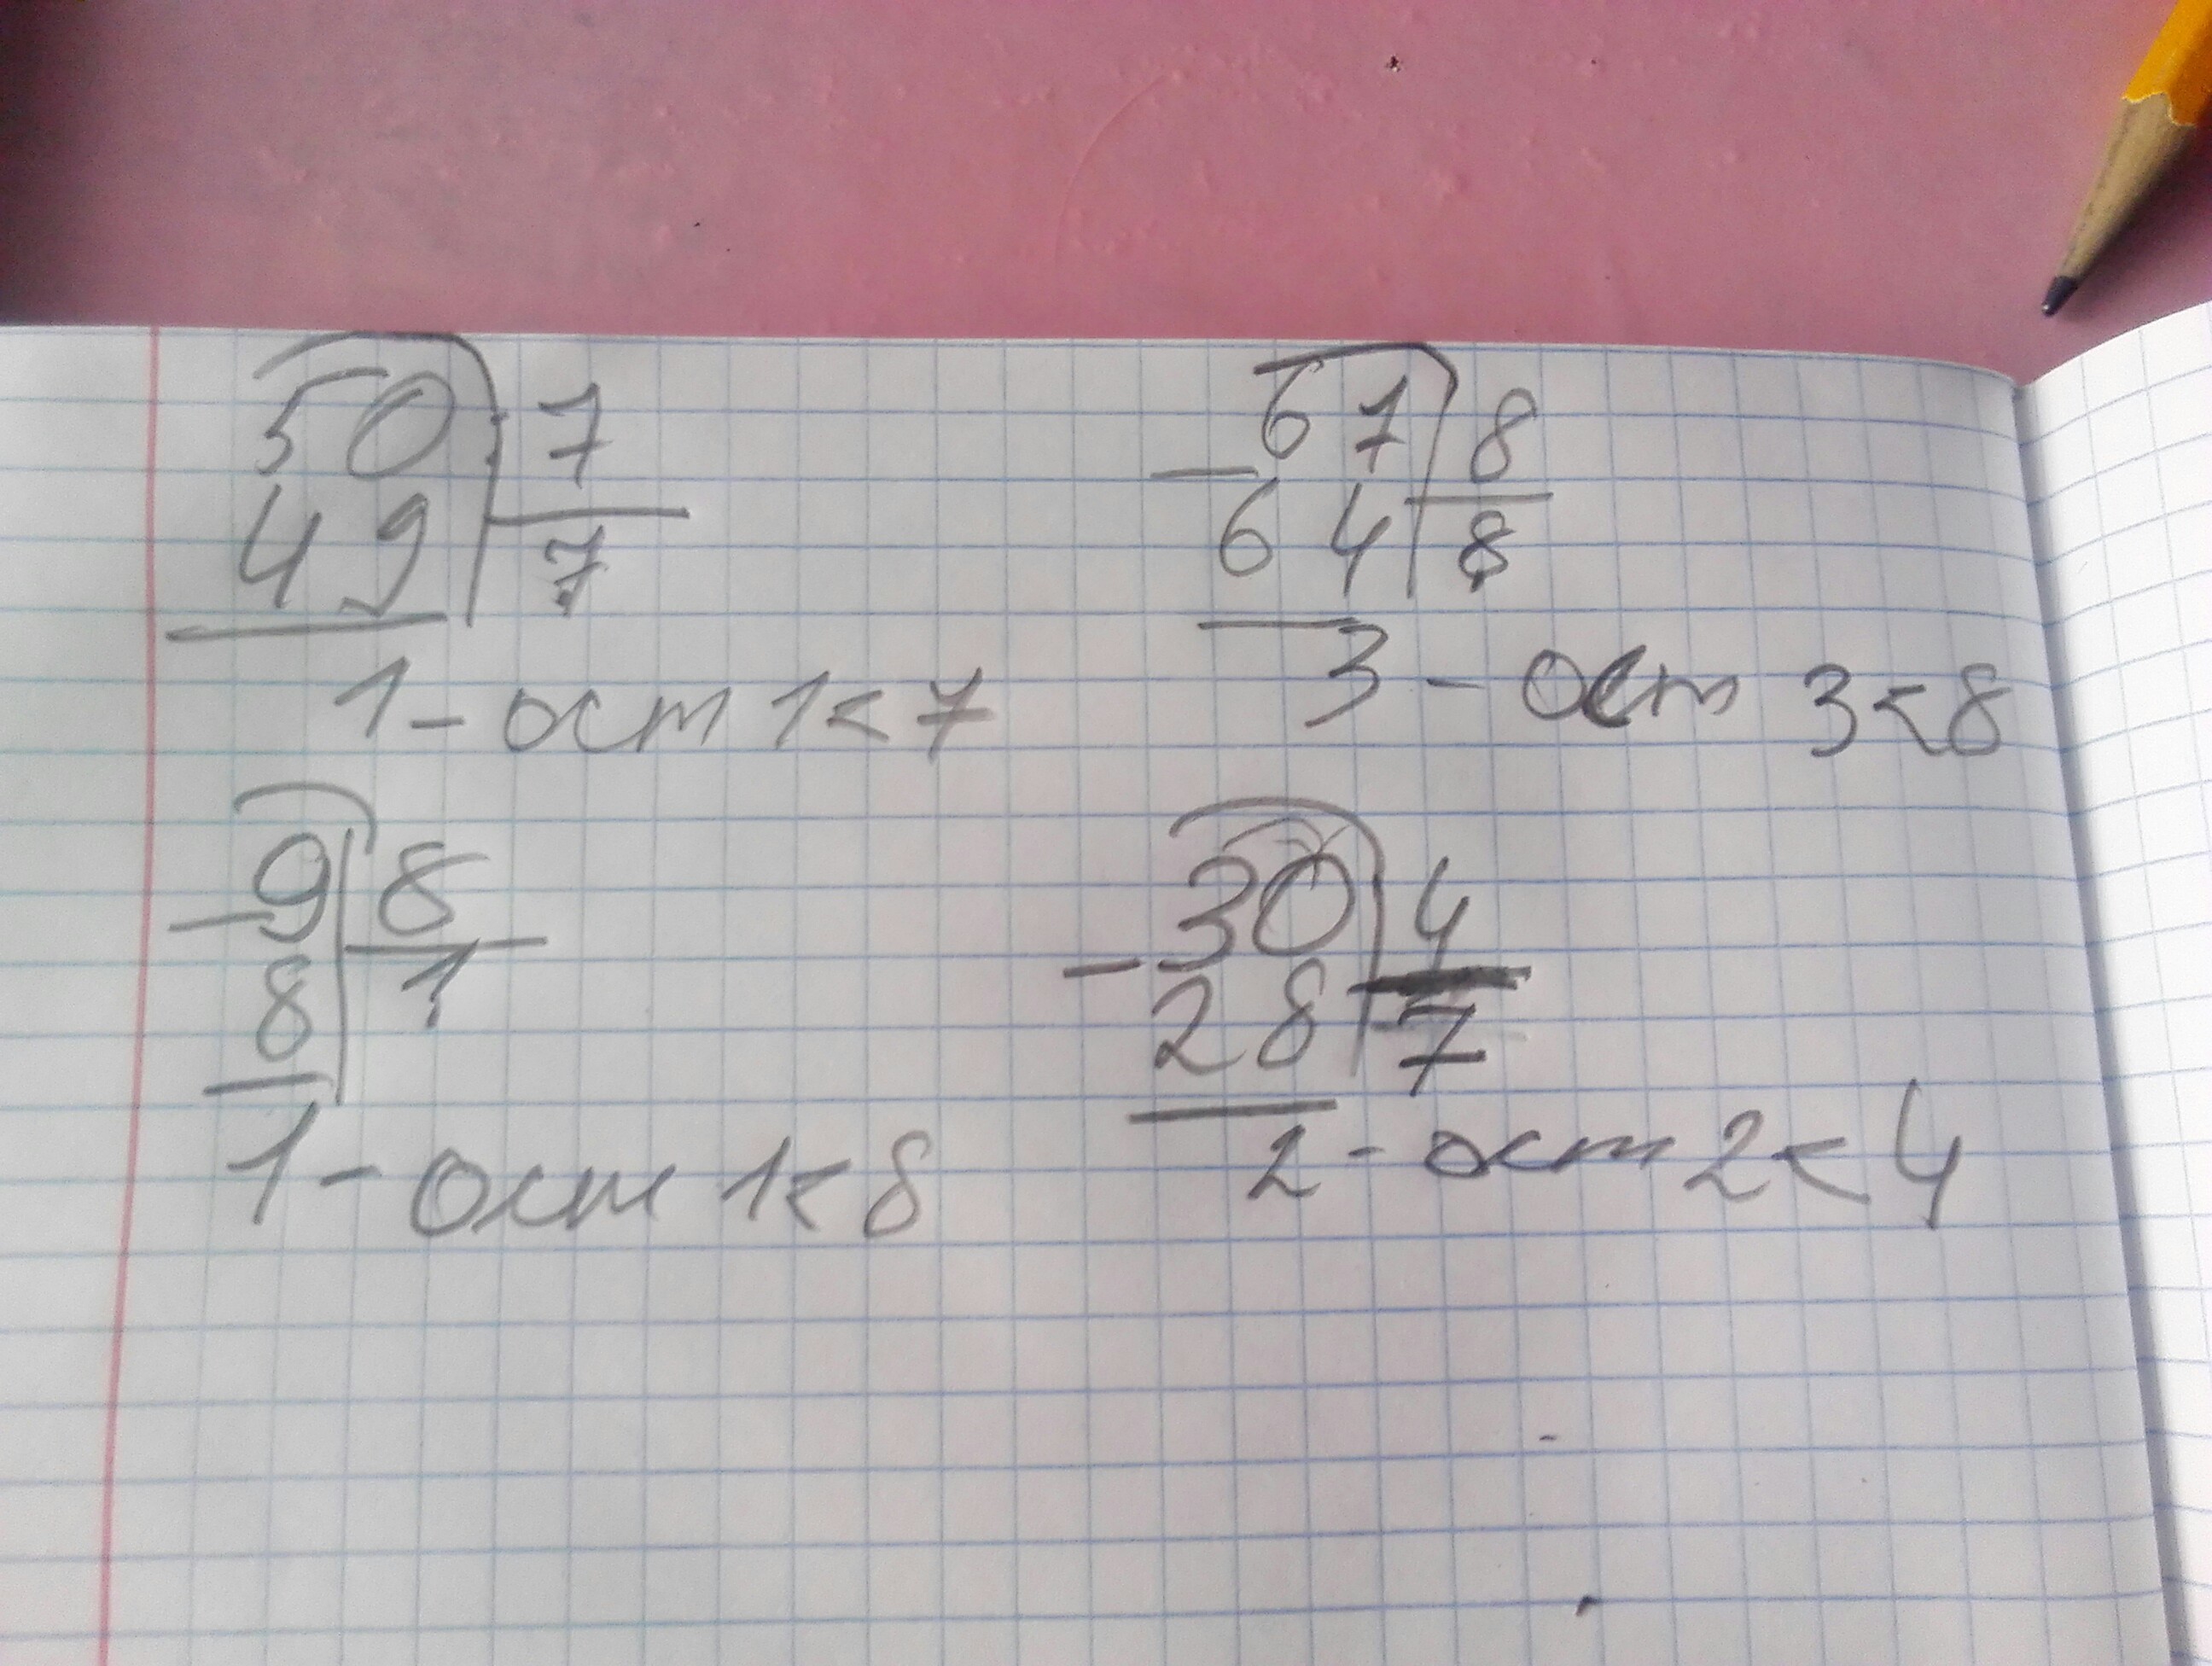 50 7
49 7
1 - ост 1 < 7
67 8
- 64 8
3 - ост 3 < 8
- 9 8
8 1
1 - ост 1 < 8
- 30 4
28 7
2 - ост 2 < 4